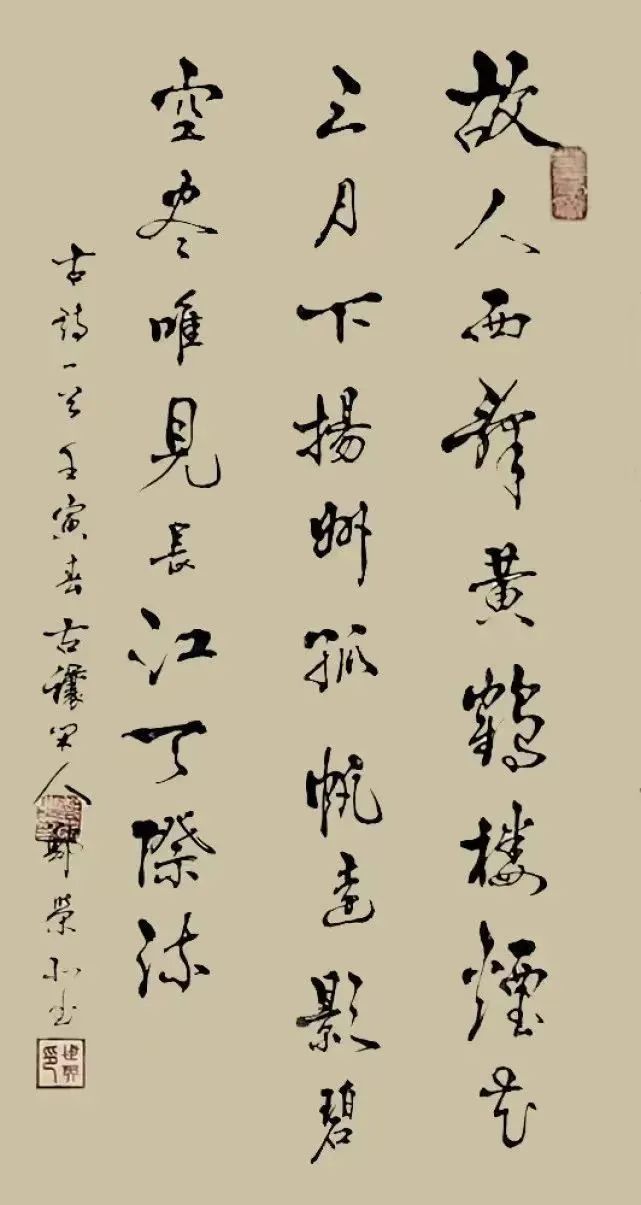 故人西辭黃鶴樓煙花
三月下揚州孤帆遠影碧
空盡唯見長江天際流
古詩一首壬寅春古穰人榮書